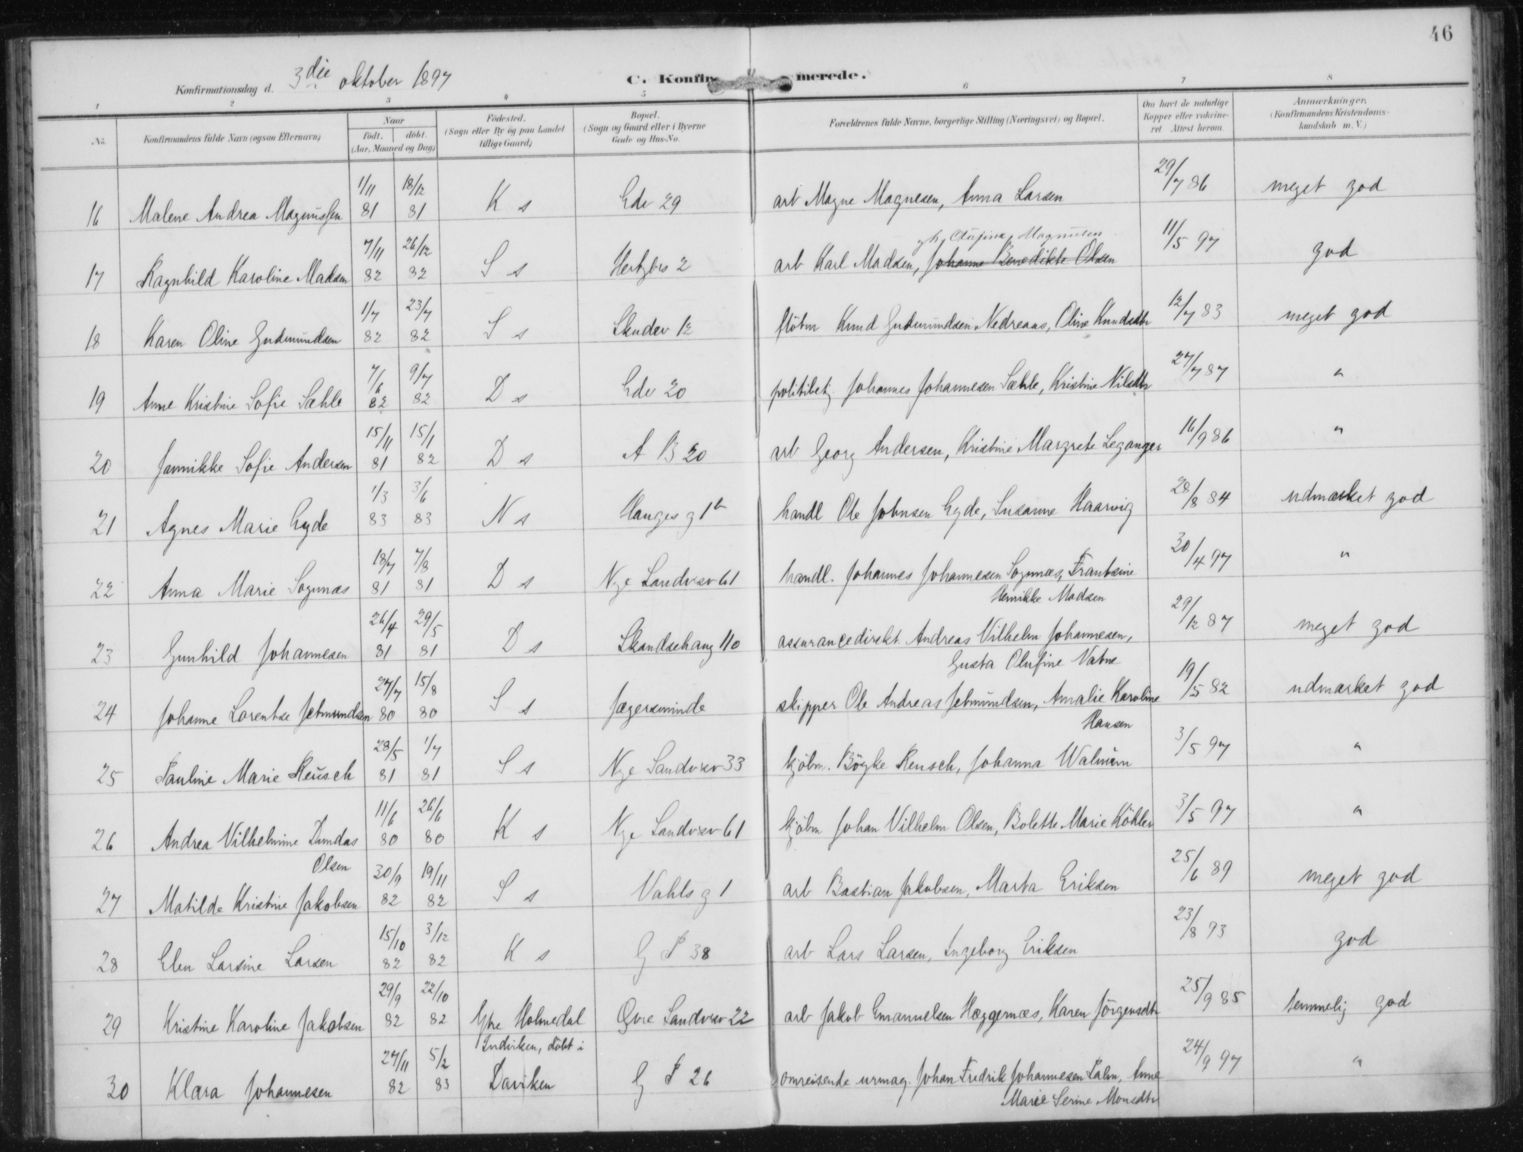 46
Konfirmationsdag d. 3die oktober 1897
C. Konfirmerede.
1 2 3 4 5 6 7 8
No. Konfirmandens fulde Navn (ogsaa Efternavn) Naar Født. døbt. (Aar, Maaned og Dag) Fødested. (Sogn eller By og paa Landet tillige Gaard) Bopæl. (Sogn og Gaard eller i Byerne Gade og Hus-No. Forældrenes fulde Navne, borgerlige Stilling (Næringsvei) og Bopæl. Om havt de naturlige Kopper eller vakcineret Attest herom. Anmærkninger. (Konfirmandens Kristendomskundskab m. V.)
16 Malene Andrea Magnussen 1/11 81 18/12 81 K s Edv 29 arb Magne Magnesen, Anna Larsen 29/7 86 meget god
17 Ragnhild Karoline Madsen 7/11 82 26/12 82 S s Hertzbs 2 arb Karl Madsen, Johanne Benedikte Olsen 11/5 97 god
18 Karen Oline Gudmundsen 1/7 82 23/7 82 S s Skudev 12 Knud Gudmundsen Nedreaas, Oline Knudsdtr 12/7 83 meget god
19 Anne Kristine Sofie Sæhle 7/6 82 9/7 82 D s Edv 20 politibetj Johannes Johannesen Sæhle, Kristine Nilsdtr 27/7 87 "
20 Jannikke Sofie Andersen 15/11 81 15/1 82 D s A B 20 arb Georg Andersen, Kristine Margrete Leganger 16/9 86 "
21 Agnes Marie Gyde 1/3 83 3/6 83 N s Hauges g 1b handl Ole Johnsen Gyde, Susanne Haarvig 28/8 84 udmærket god
22 Anna Marie Sognnæs 18/7 81 7/8 81 D s Nye Sandvsv 61 handl. Johannes Johannesen Sognnæs, Frantsine Henrikke Madsen 30/4 97 "
23 Gunhild Johannesen 26/4 81 29/5 81 D s Skandsehaug 110 assurancedirekt Andreas Vilhelm Johannesen, Gusta Olufine Vatne 29/12 87 meget god
24 Johanne Lorentse Jetmundsen 27/7 80 15/8 80 S s Jægersminde skipper Ole Andreas Jetmundsen, Amalie Karoline Hansen 19/5 82 udmærket god
25 Pauline Marie Reusch 28/5 81 1/7 81 S s Nye Sandvsv 33 kjøbm. Böyke Reusch, Johanna Walnum 3/5 97 "
26 Andrea Vilhelmine Dundas Olsen 11/6 80 26/6 80 K s Nye Sandvsv 61 kjøbm Johan Vilhelm Olsen, Bolette Marie Köhler 3/5 97 "
27 Matilde Kristine Jakobsen 30/9 82 19/11 82 S s Vahls g 1 arb Bastian Jakobsen, Marta Eriksen 25/6 89 meget god
28 Elen Larsine Larsen 15/10 82 3/12 82 K s G P 38 arb Lars Larsen, Ingeborg Eriksen 23/8 93 god
29 Kristine Karoline Jakobsen 29/9 82 22/10 82 Ytre Holmedal Øvre Sandvsv 22 arb Jakob Emanuelsen Hæggernæs, Karen Jörgensdtr 25/9 85 temmelig god
30 Klara Johannesen 27/11 82 5/2 83 Indviken, döbt i Daviken G P 26 omreisende urmag. Johan Fredrik Johannesen Palm, Anne Marie Serine Monsdtr 24/9 97 "